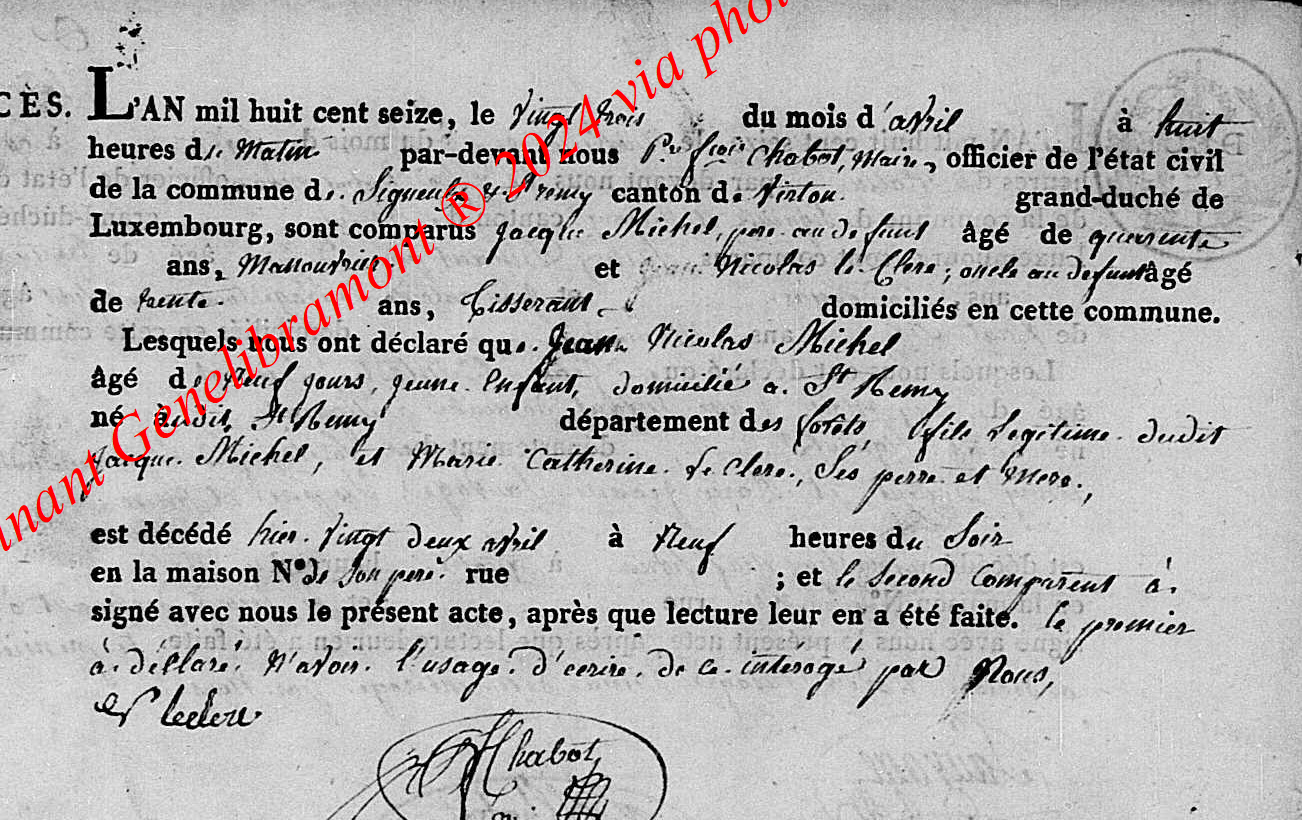 CÈS. L'AN mil huit cent seize, le vingt trois du mois d'avril à huit
heures de Matin par-devant nous Pre frçois Chabot, Maire, officier de l'état civil
de la commune de Signeulx & St remy canton de Virton grand-duché de
Luxembourg, sont comparus Jacque Michel, pere au defunt âgé de quarente
ans, Manouvrier et Jean Nicolas le Clerc, oncle au defunt âgé
de trente ans, Tisserant domiciliés en cette commune.
Lesquels nous ont déclaré que Jean Nicolas Michel
âgé de Neuf jours, jeune Enfant, domicilié a St Remy
né audit St Remy département des forêts, fils Legitime dudit
Jacque Michel, et Marie Catherine Le Clerc, Ses perre et Mere,
est décédé hier vingt deux avril à Neuf heures du Soir
en la maison N° de Son pere rue ; et le Second Comparent à
signé avec nous le présent acte, après que lecture leur en a été faite. le premier
à déclaré N'avoir l'usage d'ecrire de ce interogé par Nous,
leclerc
Chabot
nant Genelibramont ® 2024 via pho